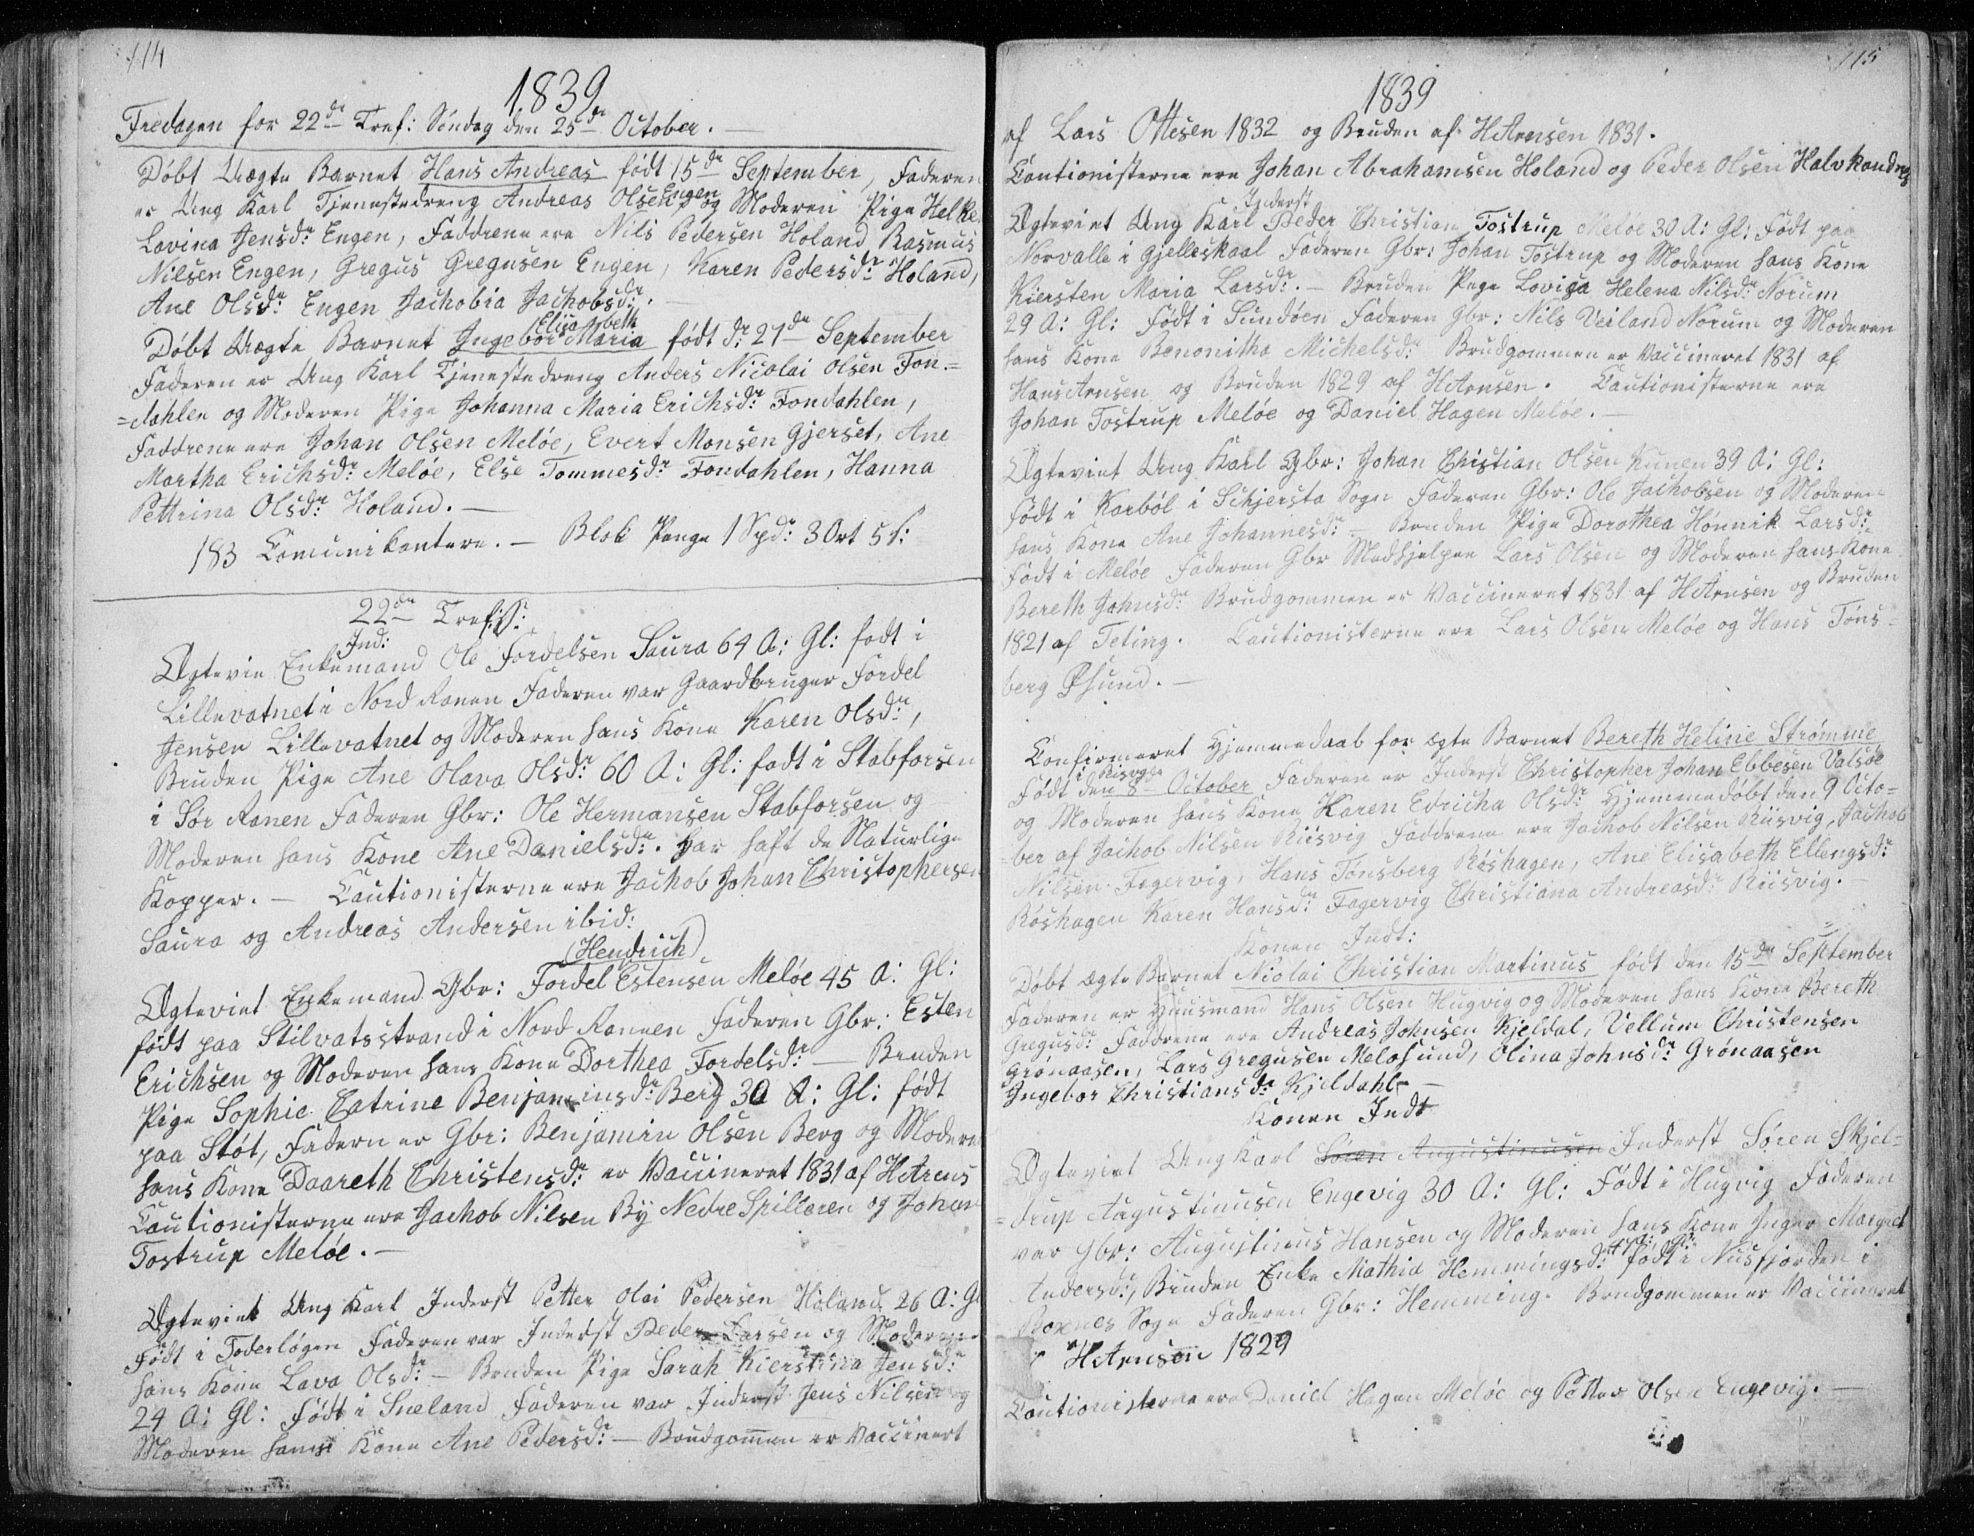 114
1839
Fredagen for 22de Tref: Søndag den 25de October. —
Døbt Uægte Barnet Hans Andreas født 15de September, Faderen
er Ung Karl Tjenestedreng Andreas Olsen Engen og Moderen Pige Helke
Lovina Jensdr: Engen, Faddrene ere Nils Pedersen Holand, Rasmus
Nilsen Engen, Gregus Gregusen Engen, Karen Pedersdr: Holand,
Ane Olsdr: Engen Jachobia Jachobsdr:. —
Elisabeth
Døbt Uægte Barnet Ingebor Maria født d: 21de September
Faderen er Ung Karl Tjenestedreng Anders Nicolai Olsen Fon-=
=dahlen og Moderen Pige Johanna Maria Erichsdr: Fondahlen,
Faddrene ere Johan Olsen Meløe, Evert Monsen Gjerset, Ane
Martha Erichsdr: Meløe, Else Tommesdr: Fondahlen, Hanna
Pettrina Olsdr: Holand. —
183 Comunikantere. — Blok Penge 1 Spdr: 3 Ort 5 s:
22de Tref: S:
Ind:
Ægtevie Enkemand Ole Fordelsen Saura 64 A: Gl: født i
Lillevatnet i Nord Ranen Faderen var Gaardbruger Fordel
Jensen Lillevatnet og Moderen hans Kone Karen Olsdr:,
Bruden Pige Ane Olava Olsdr: 60 A: Gl: født i Stabforsen
i Sør Ranen Faderen Gbr: Ole Hermansen Stabforsen og
Moderen hans Kone Ane Danielsdr:. har haft de Naturlige
Kopper. — Cautionisterne ere Jachob Johan Christophersen
Saura og Andreas Andersen ibid:
(Hendrich)
Ægteviet Enkemand Gbr: Fordel Estensen Meløe 45 A: Gl:
født paa Stilvatsstrand i Nord Rannen Faderen Gbr: Esten
Erichsen og Moderen hans Kone Dorthea Fordelsdr: — Bruden
Pige Sophie Catrine Benjaminsdr: Berg 30 A: Gl: født
paa Støt, Fadern er Gbr: Benjamin Olsen Berg og Moderen
hans Kone Daareth Christensdr: er Vaccineret 1831 af HArens
Cautionisterne ere Jachob Nilsen By Nedre Spilleren og Johan
Tostrup Meløe. —
Ægteviet Ung Karl Inderst Petter Olai Pedersen Holand 26 A: Gl
Født i Foderløgen Faderen var Inderst Peder Larsen og Moderen
hans Kone Lava Olsdr: — Bruden Pige Sarah Kierstina Jensdr:
24 A: Gl: Født i Sneland Faderen var Inderst Jens Nilsen og
Moderen hans Kone Ane Pedersdr: — Brudgommen er Vaccinert
115
1839
af Lars Ottesen 1832 og Bruden af HArensen 1831.
Cautionisterne ere Johan Abrahamsen Holand og Peder Olsen Halvkandnes
Inderst
Ægteviet Ung Karl Peder Christian Tostrup Meløe 30 A: Gl: Født paa
Norvalle i Gjelleskaal Faderen Gbr: Johan Tostrup og Moderen hans Kone
Kiersten Maria Larsdr:. — Bruden Pige Loviga Helena Nilsdr: Norum
29 A: Gl: Født i Sundøen Faderen Gbr: Nils Veiland Norum og Moderen
hans Kone Benonitha Michelsdr: Brudgommen er Vaccineret 1831 af
Hans Arnsen og Bruden 1829 af HArensen. Cautionisterne ere
Johan Tostrup Meløe og Daniel Hagen Meløe. —
Ægteviet Ung Karl Gbr: Johan Christian Olsen Kunen 39 A: Gl:
født i Karbøl i Schjersta Sogn Faderen Gbr: Ole Jachobsen og Moderen
hans Kone Ane Johannesdr: — Bruden Pige Dorothea Hønnik Larsdr:
Født i Meløe Faderen Gbr Medhjelper Lars Olsen og Moderen hans Kone
Bereth Johnsdr: Brudgommen er Vaccineret 1831 af HArnsen og Bruden
1821 af Teting. Cautionisterne ere Lars Olsen Meløe og Hans Tøns=
berg Øsund. —
Confirmeret Hjemmedaab for ægte Barnet Bereth Heline Strømme
Født den 8de October Faderen er Inderst Christopher Johan Ebbesen Valsøe
og Moderen hans Kone Karen Edricha Olsdr: Hjemmedøbt den 9 Octo=
=ber af Jachob Nilsen Riisvig Faddrene ere Jachob Nilsen Riisvig, Jachob
Nilsen Fagervig, Hans Tønsberg Røshagen, Ane Elisabeth Ellengsdr:
Røshagen Karen Hansdr: Fagervig Christiana Andreasdr: Riisvig. —
Konen Indt:
Døbt ægte Barnet Niolai Christian Martinus født den 15de September
Faderen er Huusmand Hans Olsen Hugvig og Moderen hans Kone Bereth
Gregusdr: Faddrene ere Andreas Johnsen Kjeldal, Vellum Christensen
Grønaasen, Lars Gregusen Meløsund, Olina Johnsdr: Grønaasen
Ingebor Christiansdr: Kjeldahl —
Konen Indt
Ægteviet Ung Karl Søren Augustinusen Inderst Søren Skjel=
=drup Augustinusen Engevig 30 A: Gl: Født i Hugvig Faderen
var Gbr: Augustinus Hansen og Moderen hans Kone Inger Margret
Andersdr:, Bruden Enke Mathia Hemmingsdr: født i Nusfjorden i
Boxnes Sogn Faderen Gbr: Hemming. Brudgommen er Vaccineret
HArnsen 1829
Cautionisterne ere Daniel Hagen Meløe og Petter Olsen Engevig. —